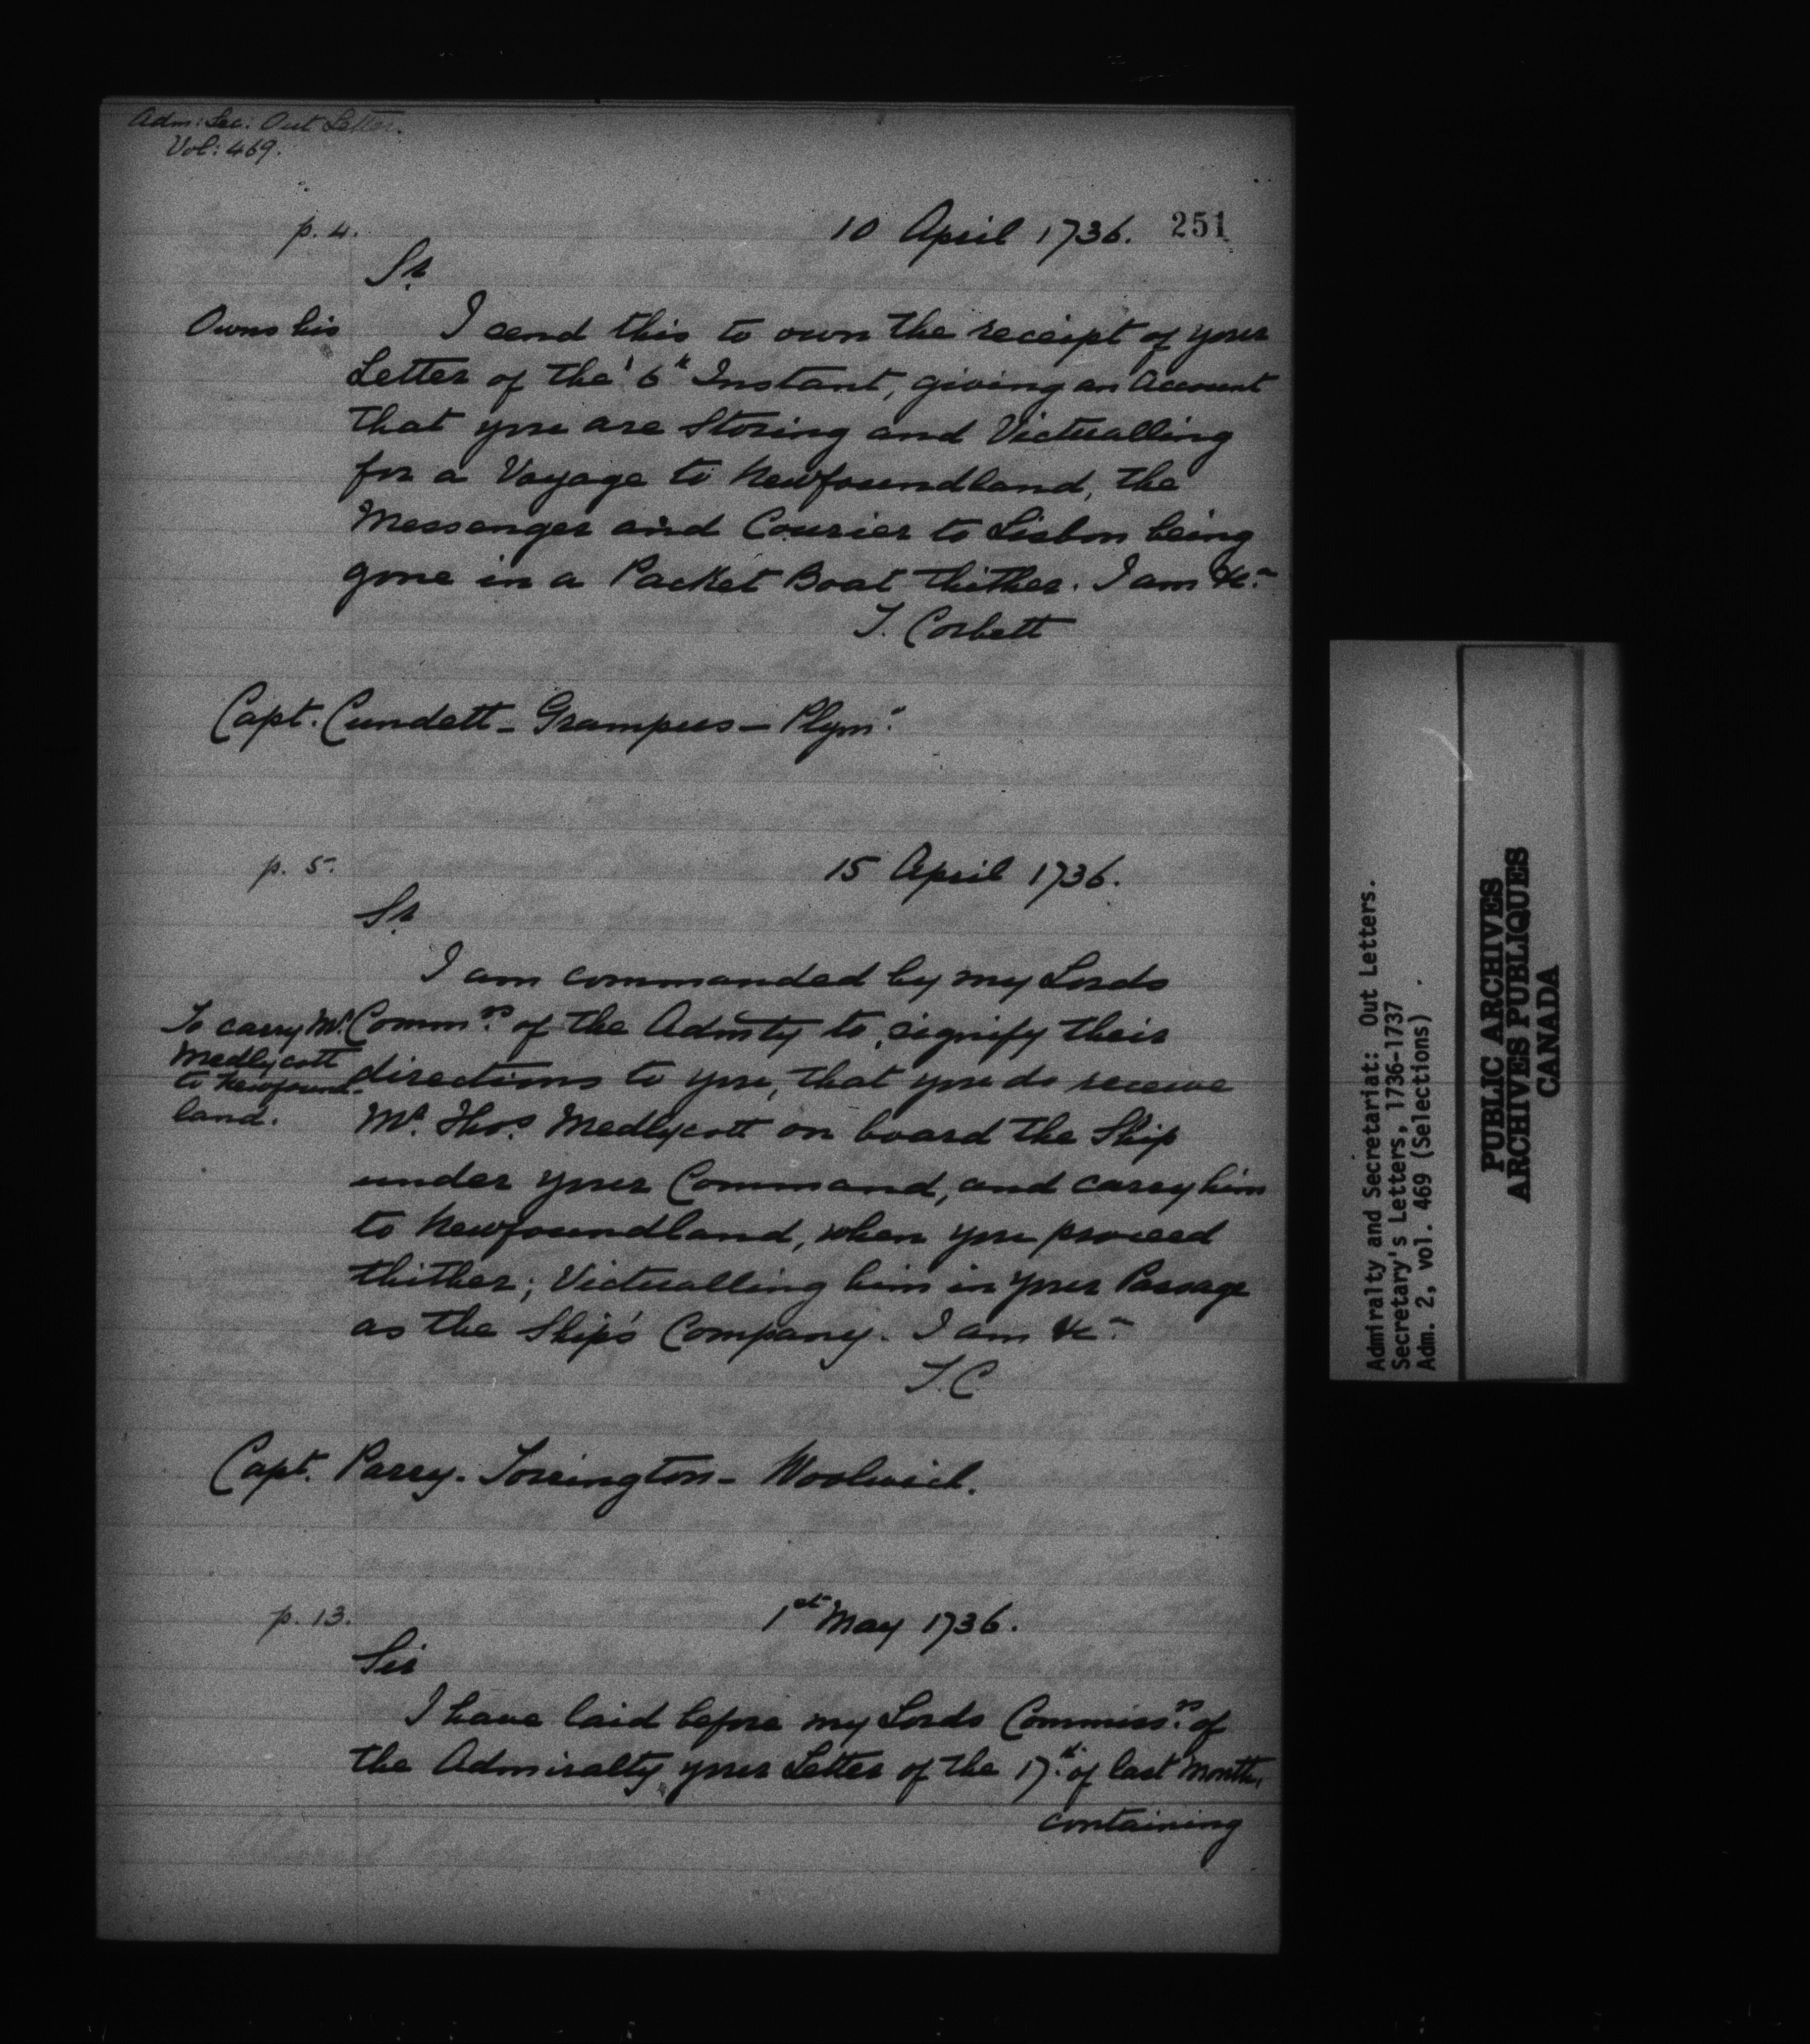 Adm: Sec: Out Letter.
Vol: 469.
251
p. 4.
10 April 1736.
Sr.
Owns his
I send this to own the receipt of your
Letter of the 6th Instant, giving an Account
that you are Storing and Victualling
for a Voyage to Newfoundland, the
Messenger and Courier to Lisbon being
gone in a Packet Boat thither. I am &c.
T. Corbett
Capt. Cundett - Grampus - Plymo.
p. 5.
15 April 1736.
Sr.
I am commanded by my Lords
Commrs. of the Admty to signify their
directions to you, that you do receive
Mr. Thos. Medlycott on board the Ship
under your Command, and carry him
to Newfoundland, when you proceed
thither; Victualling him in your Passage
as the Ship's Company. I am &c
T. C
To carry Mr.
Medlycott
to Newfound-
land.
Capt. Parry. Torrington - Woolwich.
p. 13.
1st May 1736.
Sir
I have laid before my Lords Commissrs. of
the Admiralty your Letter of the 17th. of last Month,
containing
Admiralty and Secretariat: Out Letters.
Secretary's Letters, 1736-1737
Adm. 2, vol. 469 (Selections)
PUBLIC ARCHIVES
ARCHIVES PUBLIQUES
CANADA